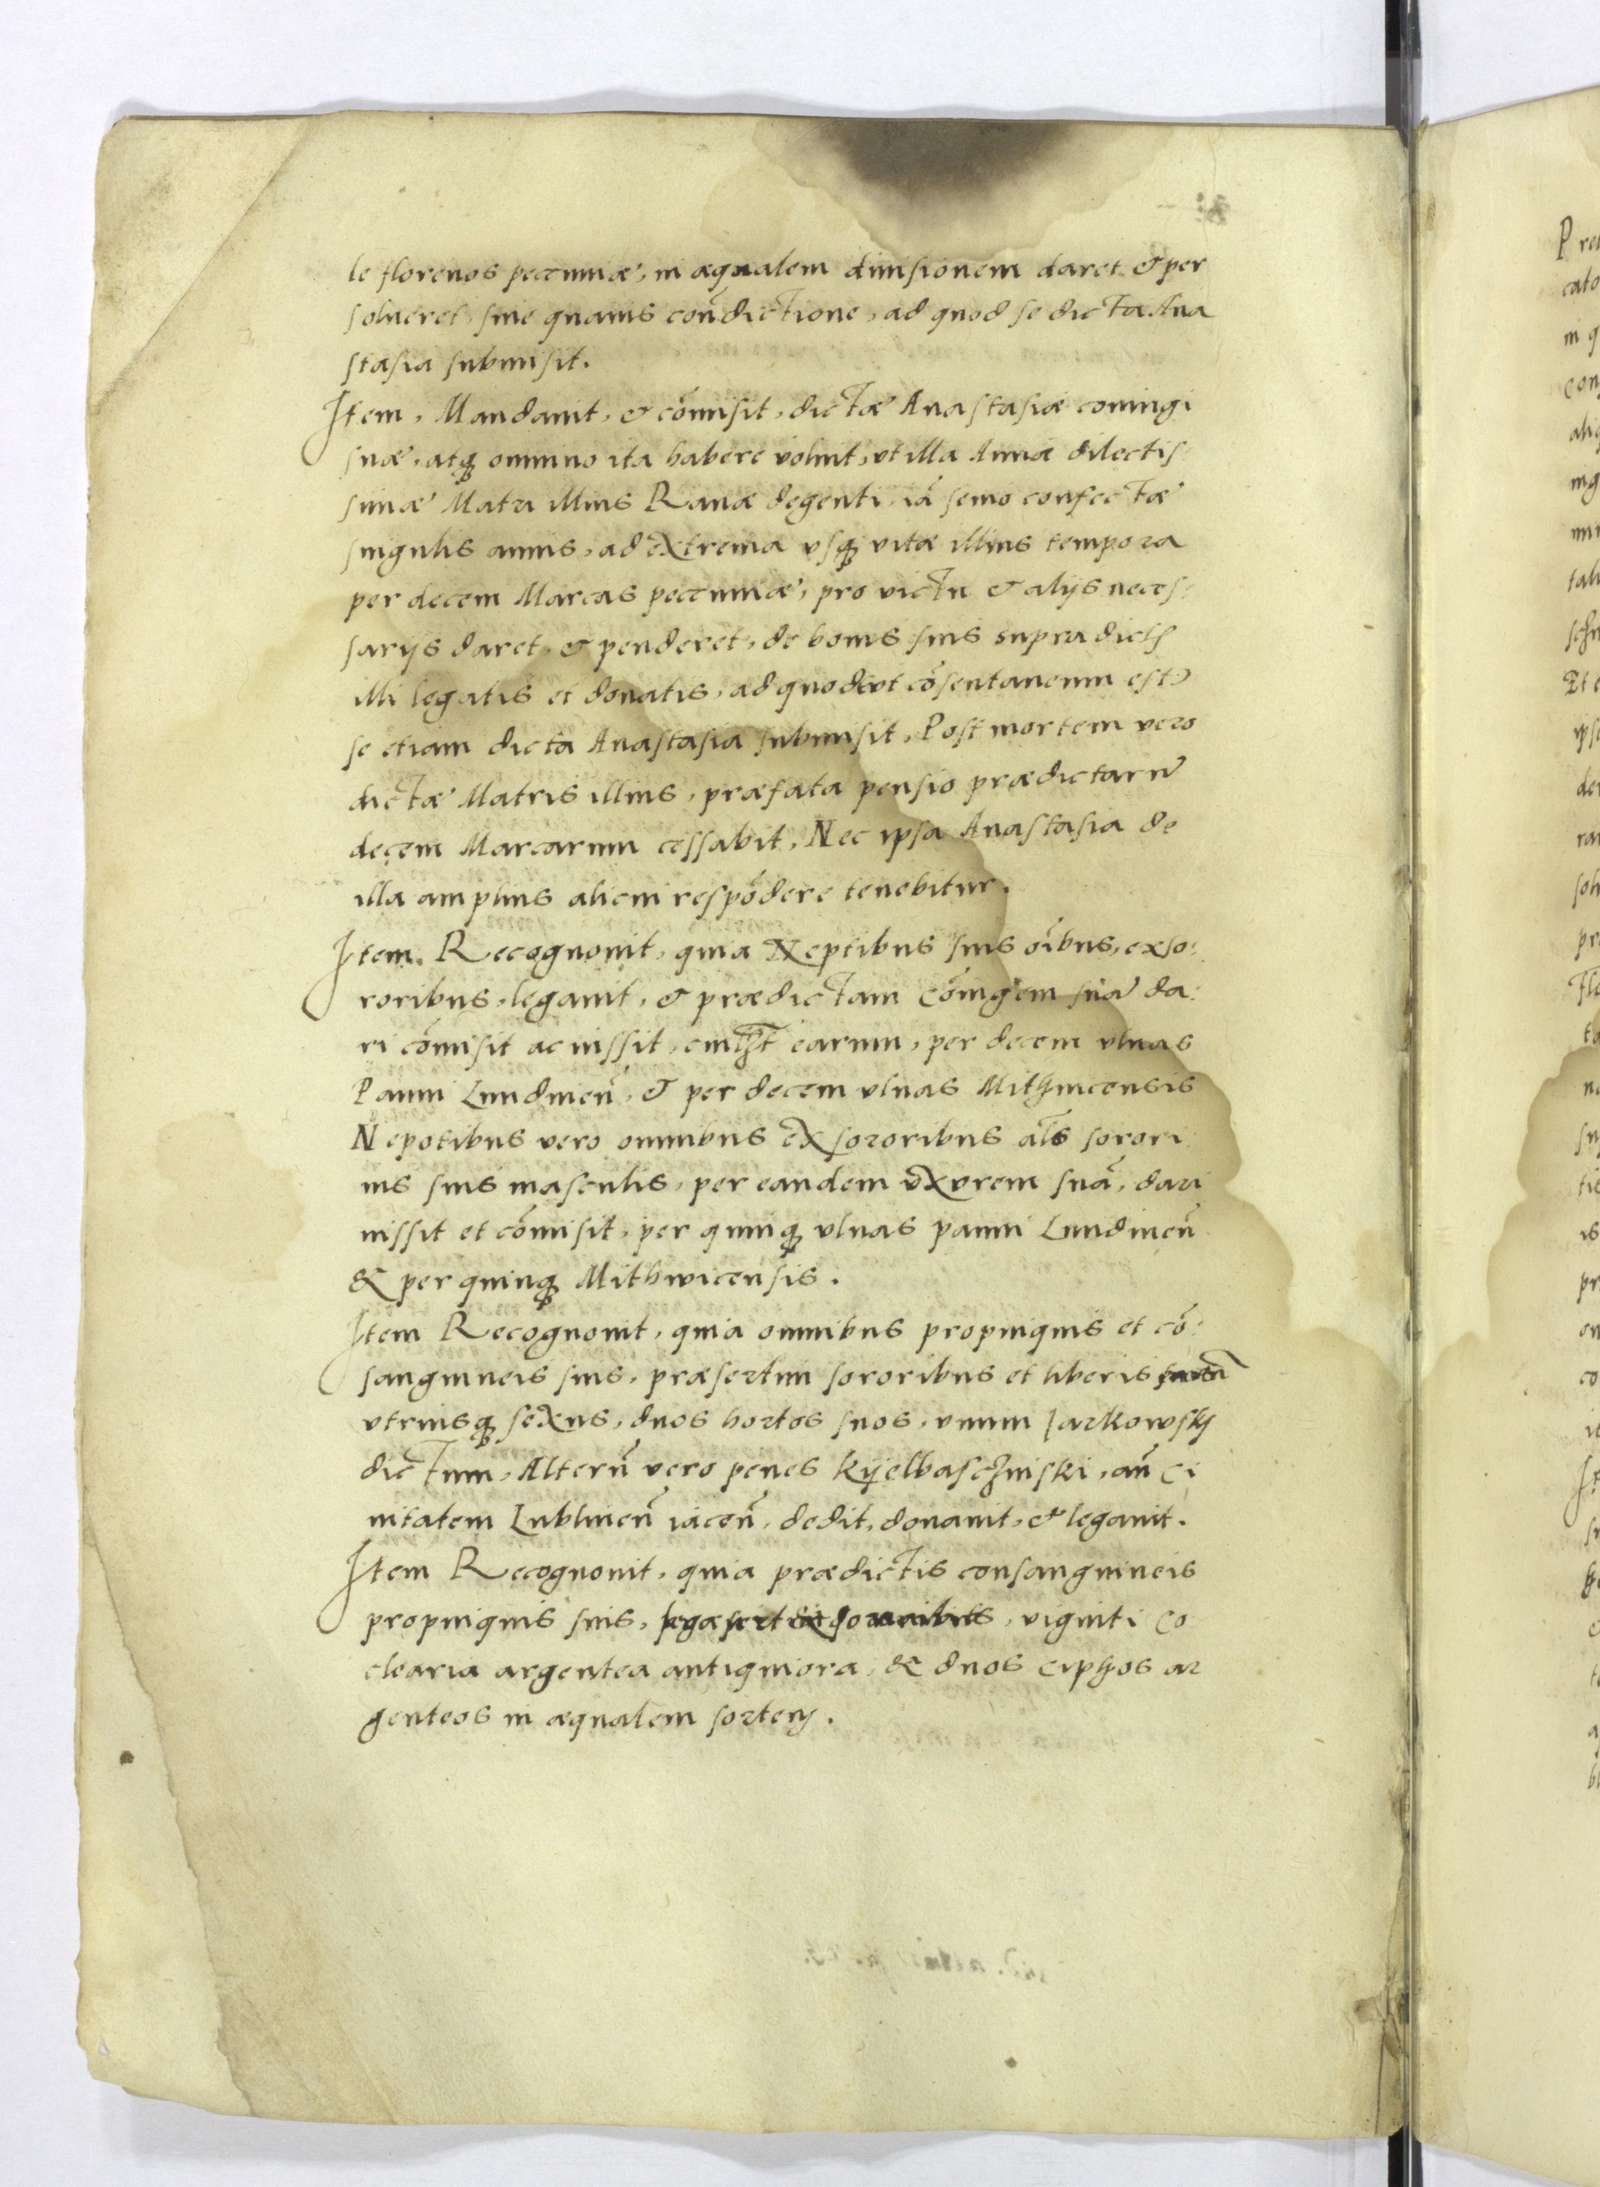 le florenos pecuniæ, in æqualem diuisionem daret & per
solueret, sine quauis cōndictione, ad quod se dicta Ana
stasia submisit.
Item, Mandauit, & cōmisit, dictæ Anastasiæ coniugi
suæ, atq; omnino ita habere voluit, vt illa Annæ dilectis
simæ Matri illius Rauæ degenti, iā senio confectæ
singulis annis, ad extrema vsq; vitæ illius tempora
per decem Marcas pecuniæ, pro victu & alijs neces:
sarijs daret, & penderet, de bonis suis supra dict
illi legatis et donatis, ad quod vt cōsentaneum est
se etiam dicta Anastasia submisit, Post mortem vero
dictæ Matris illius, præfata pensio prædictarū
decem Marcarum cessabit, Nec ipsa Anastasia de
illa amplius alicui respōdere tenebitur.
Item, Recognouit, quia Neptibus suis oībus, ex so:
roribus, legauit, & prædictam Cōiugem suā da:
ri cōmisit ac iussit, earum, per decem vlnas
Panni Lundineñ, & per decem vlnas Mithwicensis
Nepotibus vero omnibus ex sororibus als sorori
nis suis masculis, per eandem vxorem suā, dari
iussit et cōmisit, per quinq; vlnas panni Lundineñ
& per quinq; Mithwicensis.
Item Recognouit, quia omnibus propinquis et cō:
sanguineis suis, præsertim sororibus et liberis
vtriusq; sexus, duos hortos suos, vnum Jarkowsky
dictum, Alterū vero penes Kyelbaschniski, añ Ci
uitatem Lublineñ iaceñ, dedit, donauit, & legauit.
Item Recognouit, quia prædictis consanguineis
propinquis suis, viginti co
clearia argentea antiquiora, & duos ciphos ar
genteos in æqualem sortem.